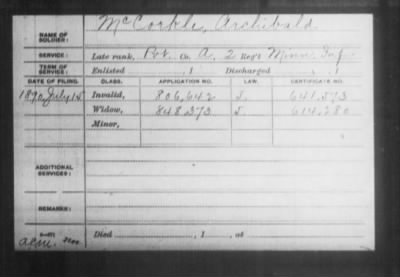 McCorkle, Archibald
NAME OF SOLDIER:
SERVICE: Late rank, Pvt. Co. A, 2 Reg't Minn. Inf.
TERM OF SERVICE: Enlisted , 1 Discharged , 1
DATE OF FILING. CLASS. APPLICATION NO. LAW. CERTIFICATE NO.
1890, July 15 Invalid, 806,642 J. 641,573
Widow, 848,373 J. 614,280
Minor,
ADDITIONAL SERVICES:
REMARKS:
Died , 1 , at